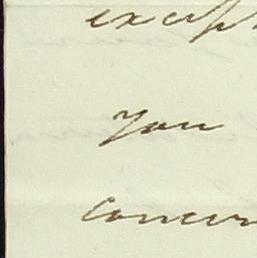 excep
you
concur